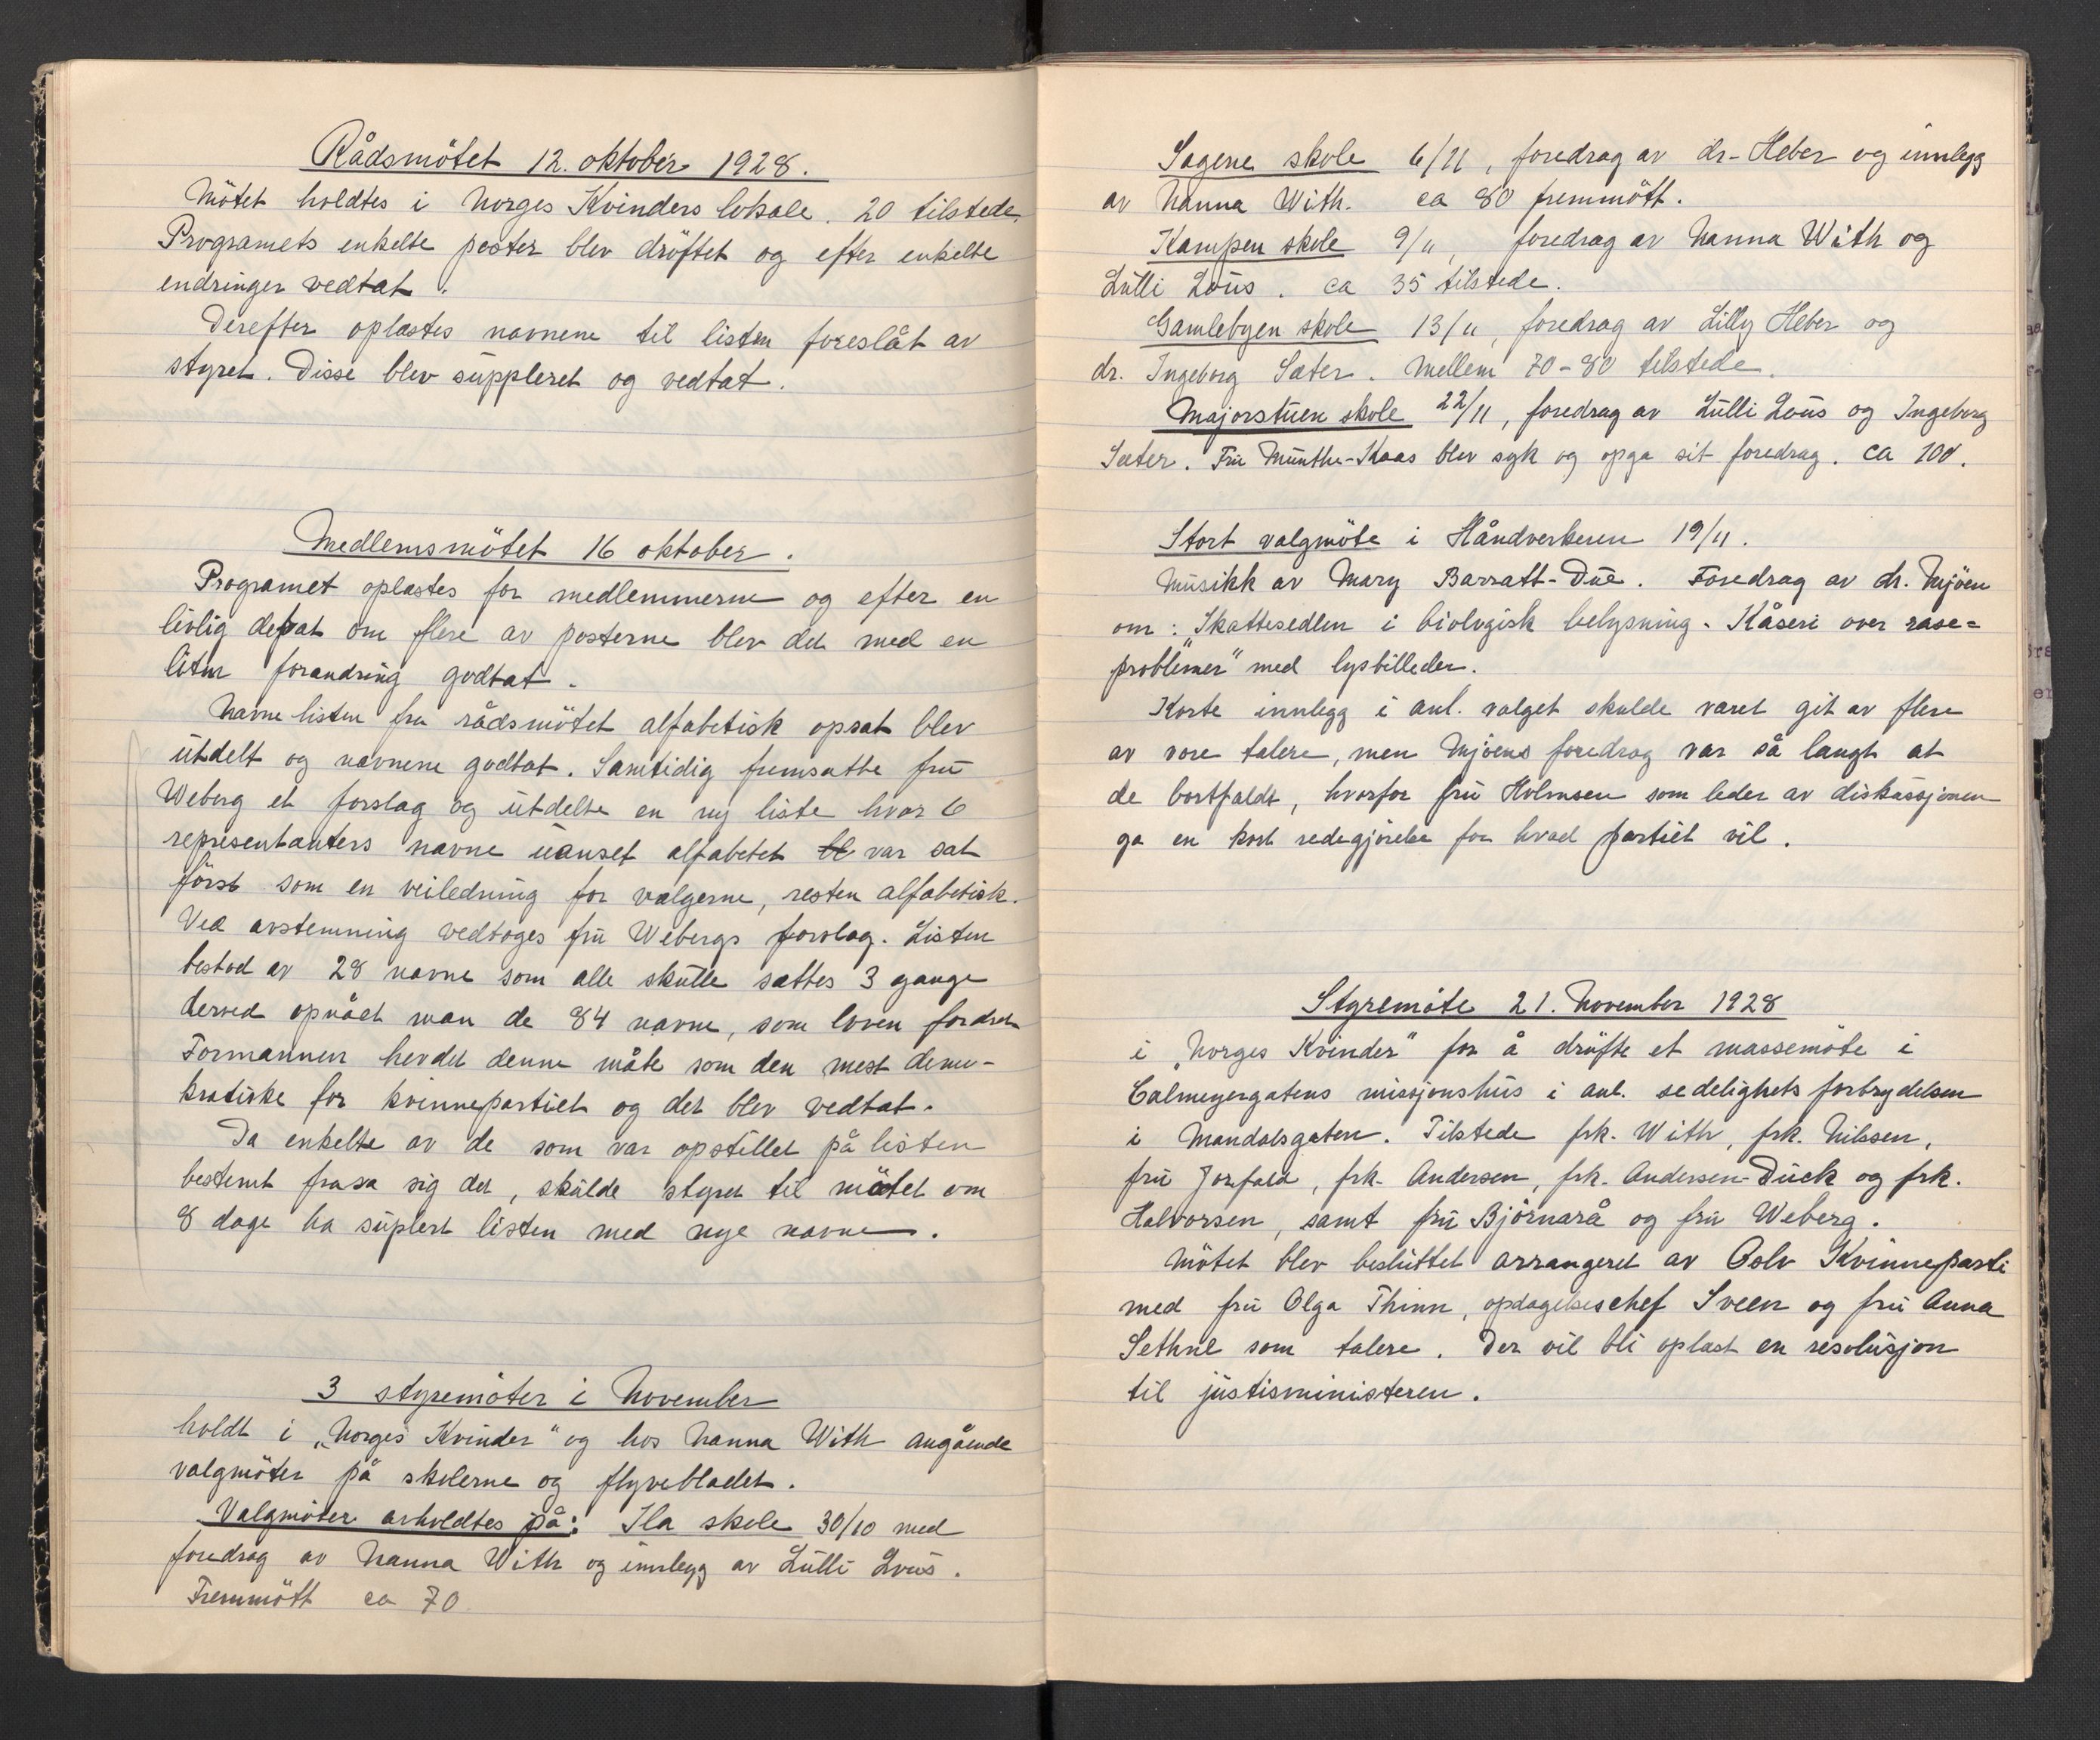 Rådsmötet 12. oktober 1928.
Mötet holdtes i Norges Kvinders lokale. 20 tilstede.
Programets enkelte poster blev dröftet og efter enkelte
endringer vedtat.
Derefter oplæstes navnene til listen foreslåt av
styret. Disse blev suppleret og vedtat.
Medlemsmötet 16 oktober.
Programet oplæstes for medlemmerne og efter en
livlig debat om flere av posterne blev det med en
liten forandring godtat.
Navnelisten fra rådsmötet alfabetisk opsat blev
utdelt og navnene godtat. Samtidig fremsatte fru
Weberg et forslag og utdelte en ny liste hvor 6
representanters navne uanset alfabetet bl var sat
först som en veiledning for vælgerne, resten alfabetisk.
Ved avstemning vedtoges fru Webergs forslag. Listen
bestod av 28 navne som alle skulle sættes 3 gange
derved opnået man de 84 navne, som loven fordret
Formannen hevdet denne måte som den mest demo-
kratiske for kvinnepartiet og det blev vedtat.
Da enkelte av de som var opstillet på listen
bestemt frasa sig det, skulde styret til mötet om
8 dage ha suplert listen med nye navne.
3 styremöter i November
holdt i „Norges Kvinder" og hos Nanna With angående
valgmöter på skolerne og flyvebladet.
Valgmöter avholdtes på: Ila skole 30/10 med
foredrag av Nanna With og innlegg av Lulli Lous.
Fremmött ca 70
Sagene skole 6/11, foredrag av dr. Heber og innlegg
av Nanna With. ca 80 fremmött.
Kampen skole 9/11, foredrag av Nanna With og
Lulli Lous. ca 35 tilstede.
Gamlebyen skole 13/11, foredrag av Lilly Heber og
dr. Ingeborg Sæter. Mellem 70-80 tilstede.
Majorstuen skole 22/11, foredrag av Lulli Lous og Ingeborg
Sæter. Fru Munthe-Kaas blev syk og opga sit foredrag. ca 100.
Stort valgmöte i Håndverkeren 19/11.
Musikk av Mary Barratt-Due. Foredrag av dr. Mjöen
om: „Skattesedlen i biologisk belysning. Kåseri over rase=
problemer" med lysbilleder.
Korte innlegg i anl. valget skulde været git av flere
av vore talere, men Mjöens foredrag var så langt at
de bortfaldt, hvorfor fru Holmsen som leder av diskussjonen
ga en kort redegjörelse for hvad partiet vil.
Styremöte 21. November 1928
i „Norges Kvinder" for å dröfte et massemöte i
Calmeyergatens missjonshus i anl. sedelighetsforbrydelsen
i Mandalsgaten. Tilstede frk. With, frk. Nilssen,
fru Jorfald, frk. Andersen, frk. Andersen-Duck og frk.
Halvorsen, samt fru Björnarå og fru Weberg.
Mötet blev besluttet arrangeret av Oslo Kvinneparti
med fru Olga Thinn, opdagelseschef Sveen og fru Anna
Sethne som talere. Der vil bli oplæst en resolusjon
til justisministeren.